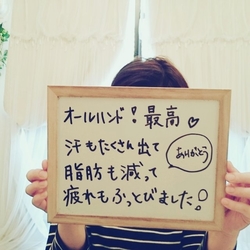 オールハンド!最高♡
汗もたくさん出て
ありがとう
脂肪も減って
疲れもふっとびました!